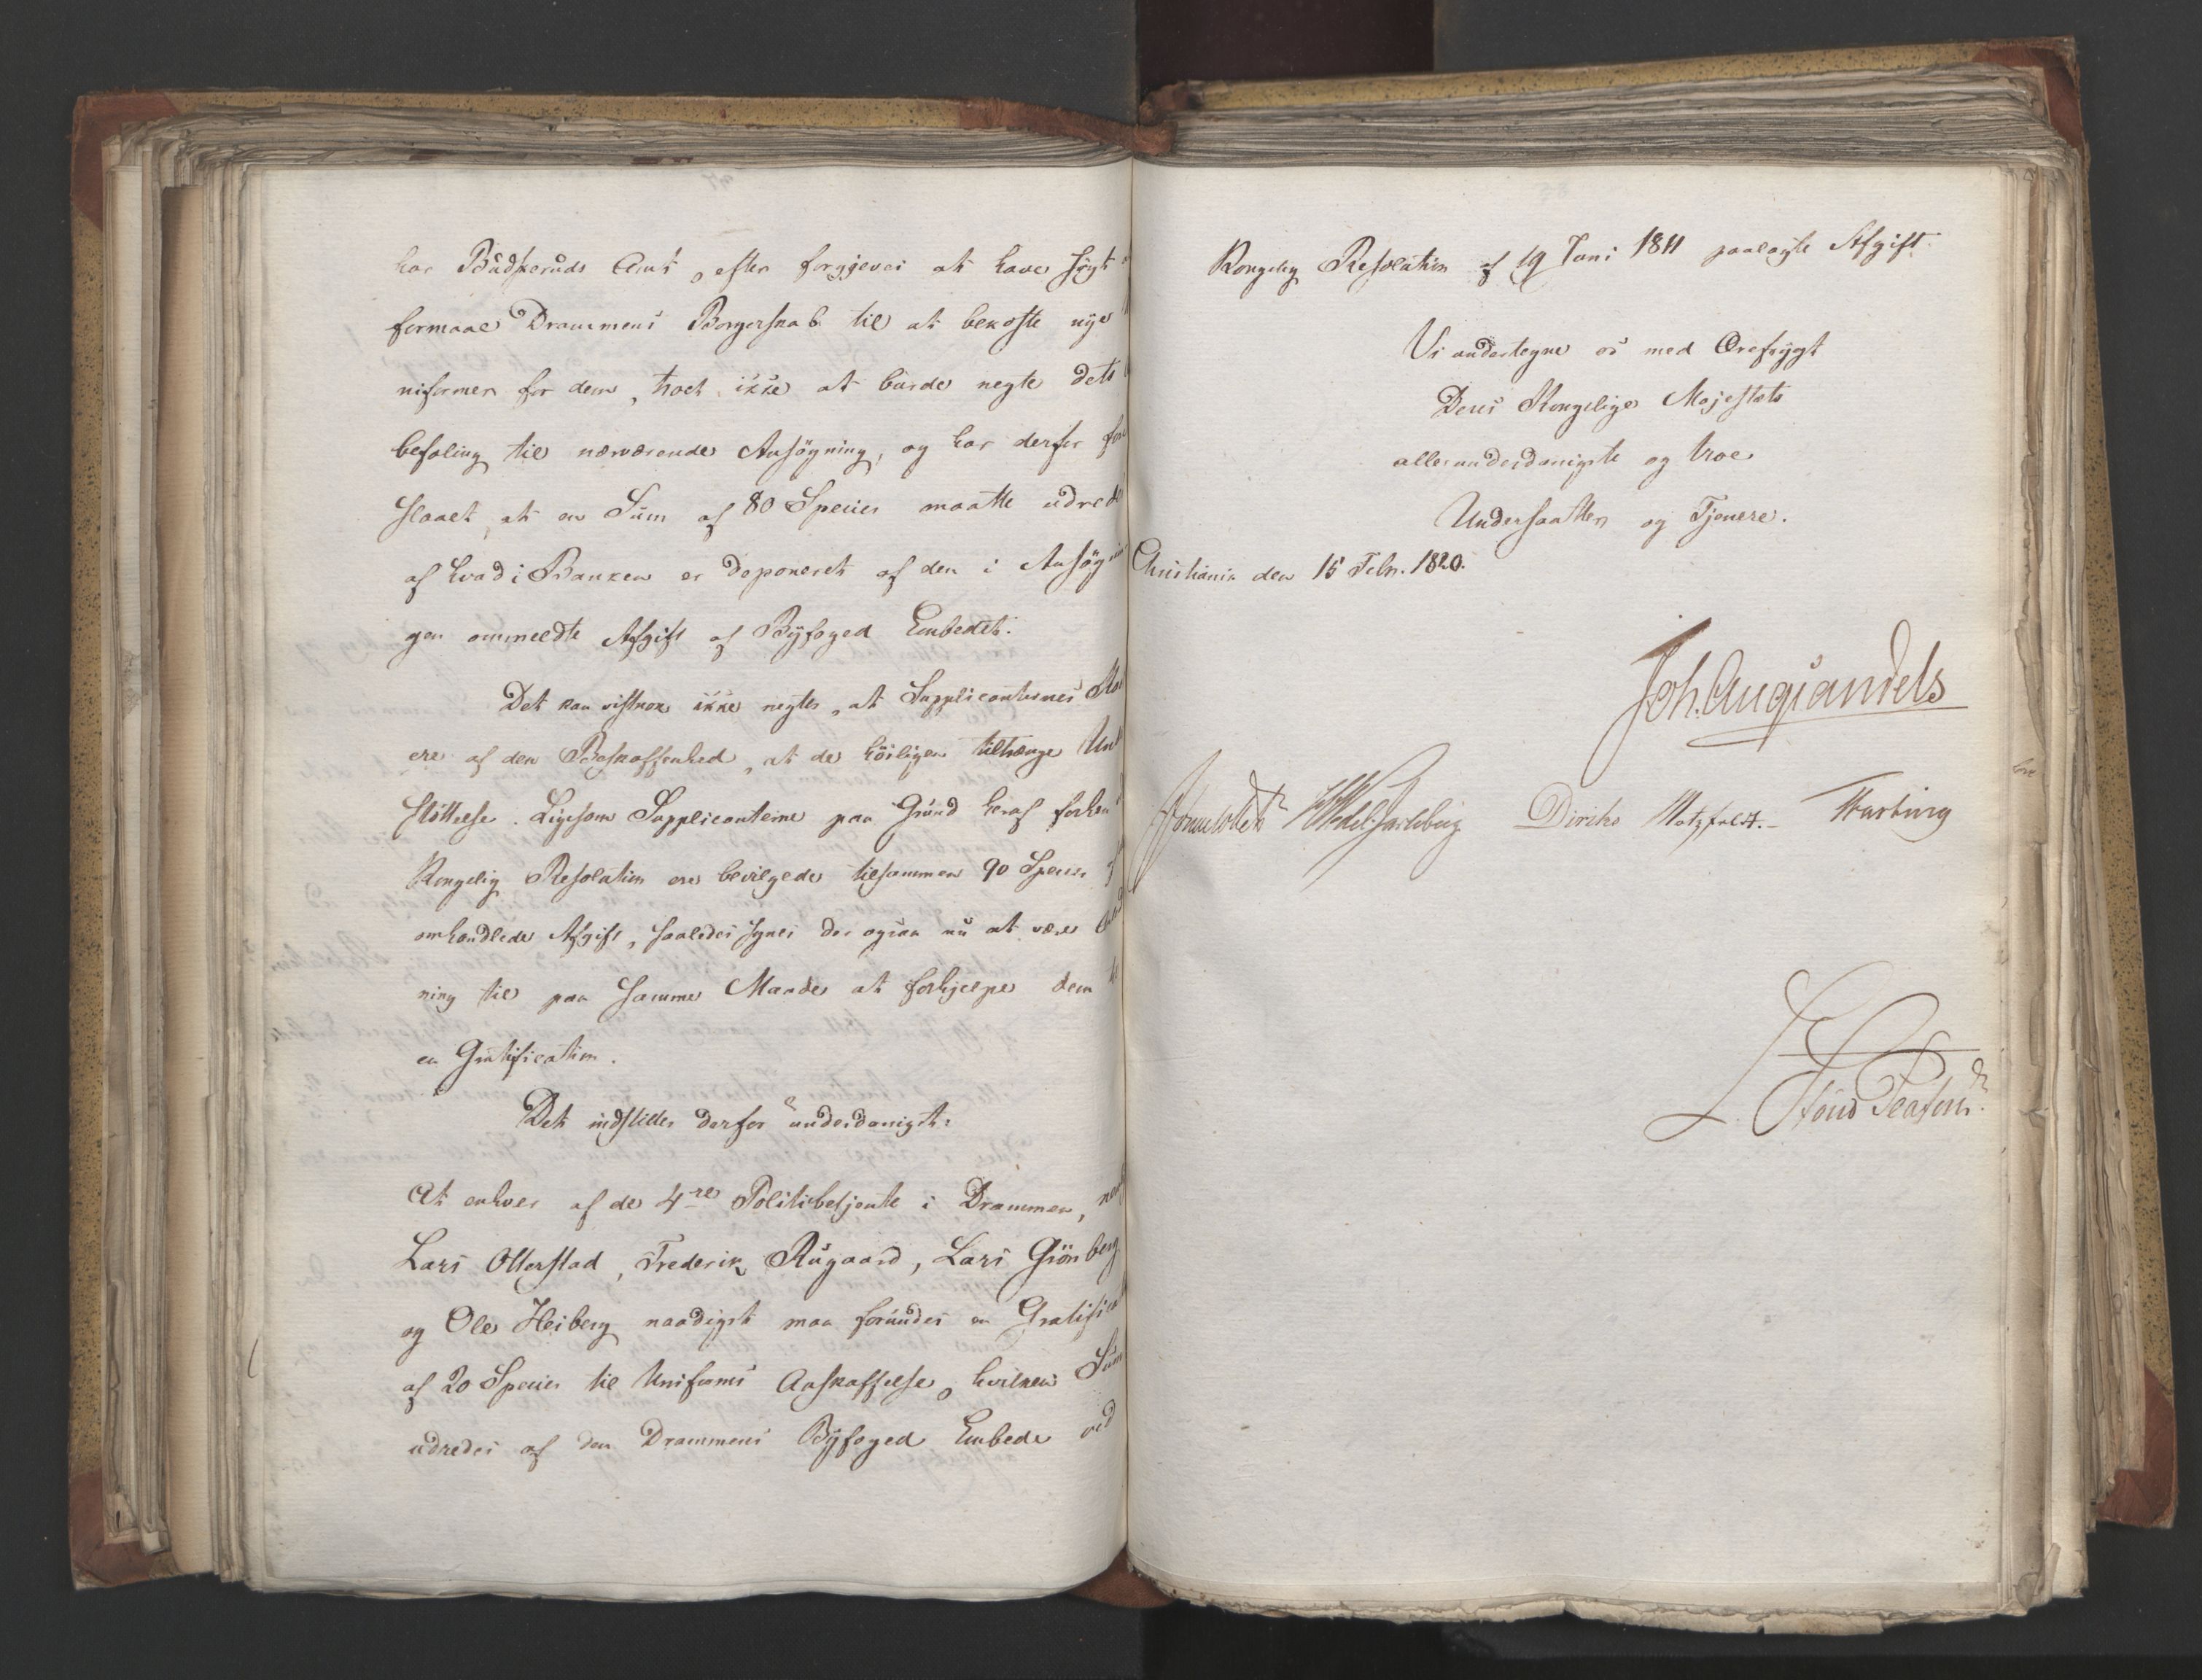 har Budskeruds Amt, efter forgjeves at have søgt
formaae Drammens Borgerskab til at bekoste nye
niformer for dem, troet ikke at burde negte dets
befaling til nærværende Ansøgning, og har derfor fore
slaaet, at en Sum af 80 Species maatte udrede
af hvad i Banken er deponeret af den i Ansøgnin
gen ommeldte Afgift af Byfoged Embedet.
Det kan vistnok ikke negtes, at Supplicanternes
ere af den Beskaffenhed, at de høiligen tiltrænge Un
støttelse. Ligesom Supplicanterne paa Grund heraf forhen
Kongelig Resolution ere bevilgede tilsammen 90 Species af
omhandlede Afgift, saaledes synes der ogsaa nu at være
ning til paa samme Maade at forhjelpe dem til
en Gratification.
Det indstilles derfor underdanigst:
At enhver af de 4re Politibetjente i Drammen,
Lars Otterstad, Frederik Rugaard, Lars Grönberg
og Ole Heiberg naadigst maa forundes en Gratific
af 20 Species til Uniforms Anskaffelse, hvilken Sum
udredes af den Drammens Byfoged Embede ved
Kongelig Resolution af 19 Juni 1811 paalagte Afgift.
Vi undertegne os med Ærefrygt
Deres Kongelige Majestæts
allerunderdanigste og troe
Undersaatter og Tjenere.
Christiania den 15 Febr. 1820.
Joh. Aug Sandels
Sommerhielm HWedel Jarlsberg Diriks Motzfeldt. Fasting